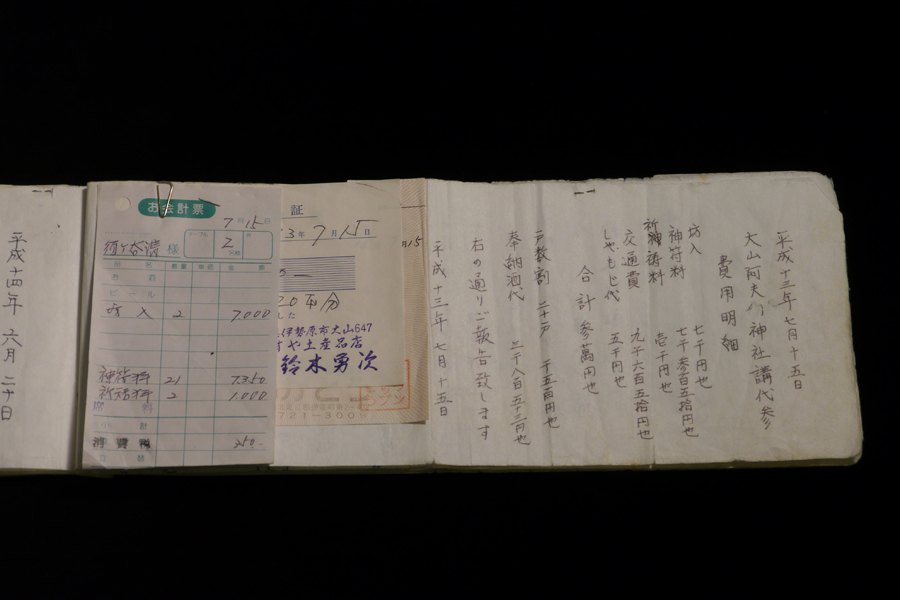 平成十三年七月十五日
大山阿夫利神社講代参
費用明細
坊入 七千円也
神符料 七千参百五拾円也
祈神祷料 壱千円也
交通費 九千六百五拾円也
しゃもじ代 五千円也
合計参萬円也
戸数割 二十戸 千五百円也
奉納酒代 二千八百五十三円也
右の通りご報告致します
平成十三年七月十五日
月15
証
3年7月15日
20本分
した
伊勢原市大山647
すや土産品店
鈴木勇次
721-3000
お会計票
7月15日
様
テーブル
2
品名 数量 単価 金額
お酒
ビール
坊入 2 7000
神符料 21 7350
祈祷料 2 1000
料
計
消費税 350-
合計
平成十四年六月二十日